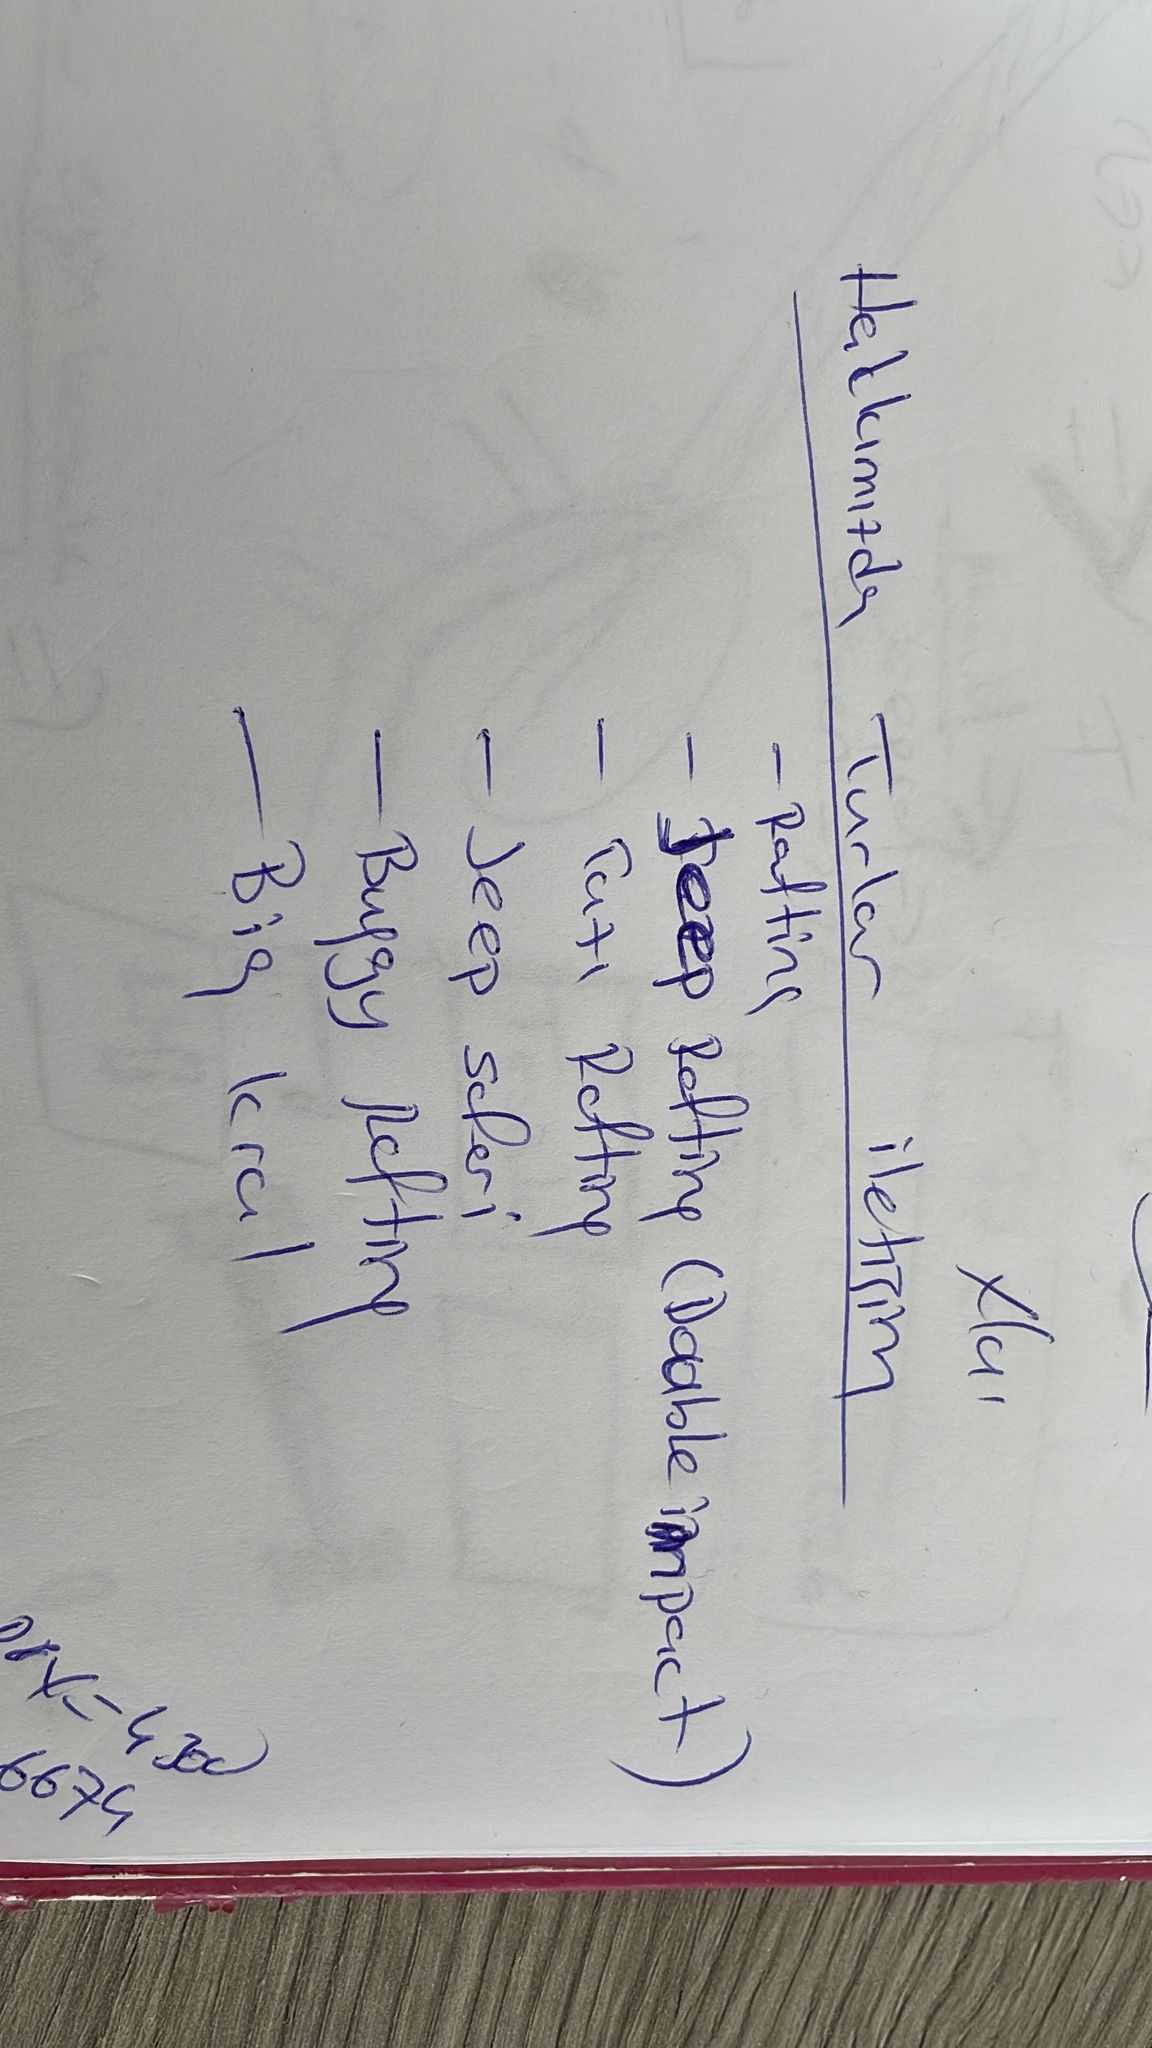 Hakkımızda Turlar iletişim
- Rafting
- Jeep Rafting (Double impact)
- Tazı Rafting
- Jeep saferi
- Buggy Rafting
- Big kral
6674